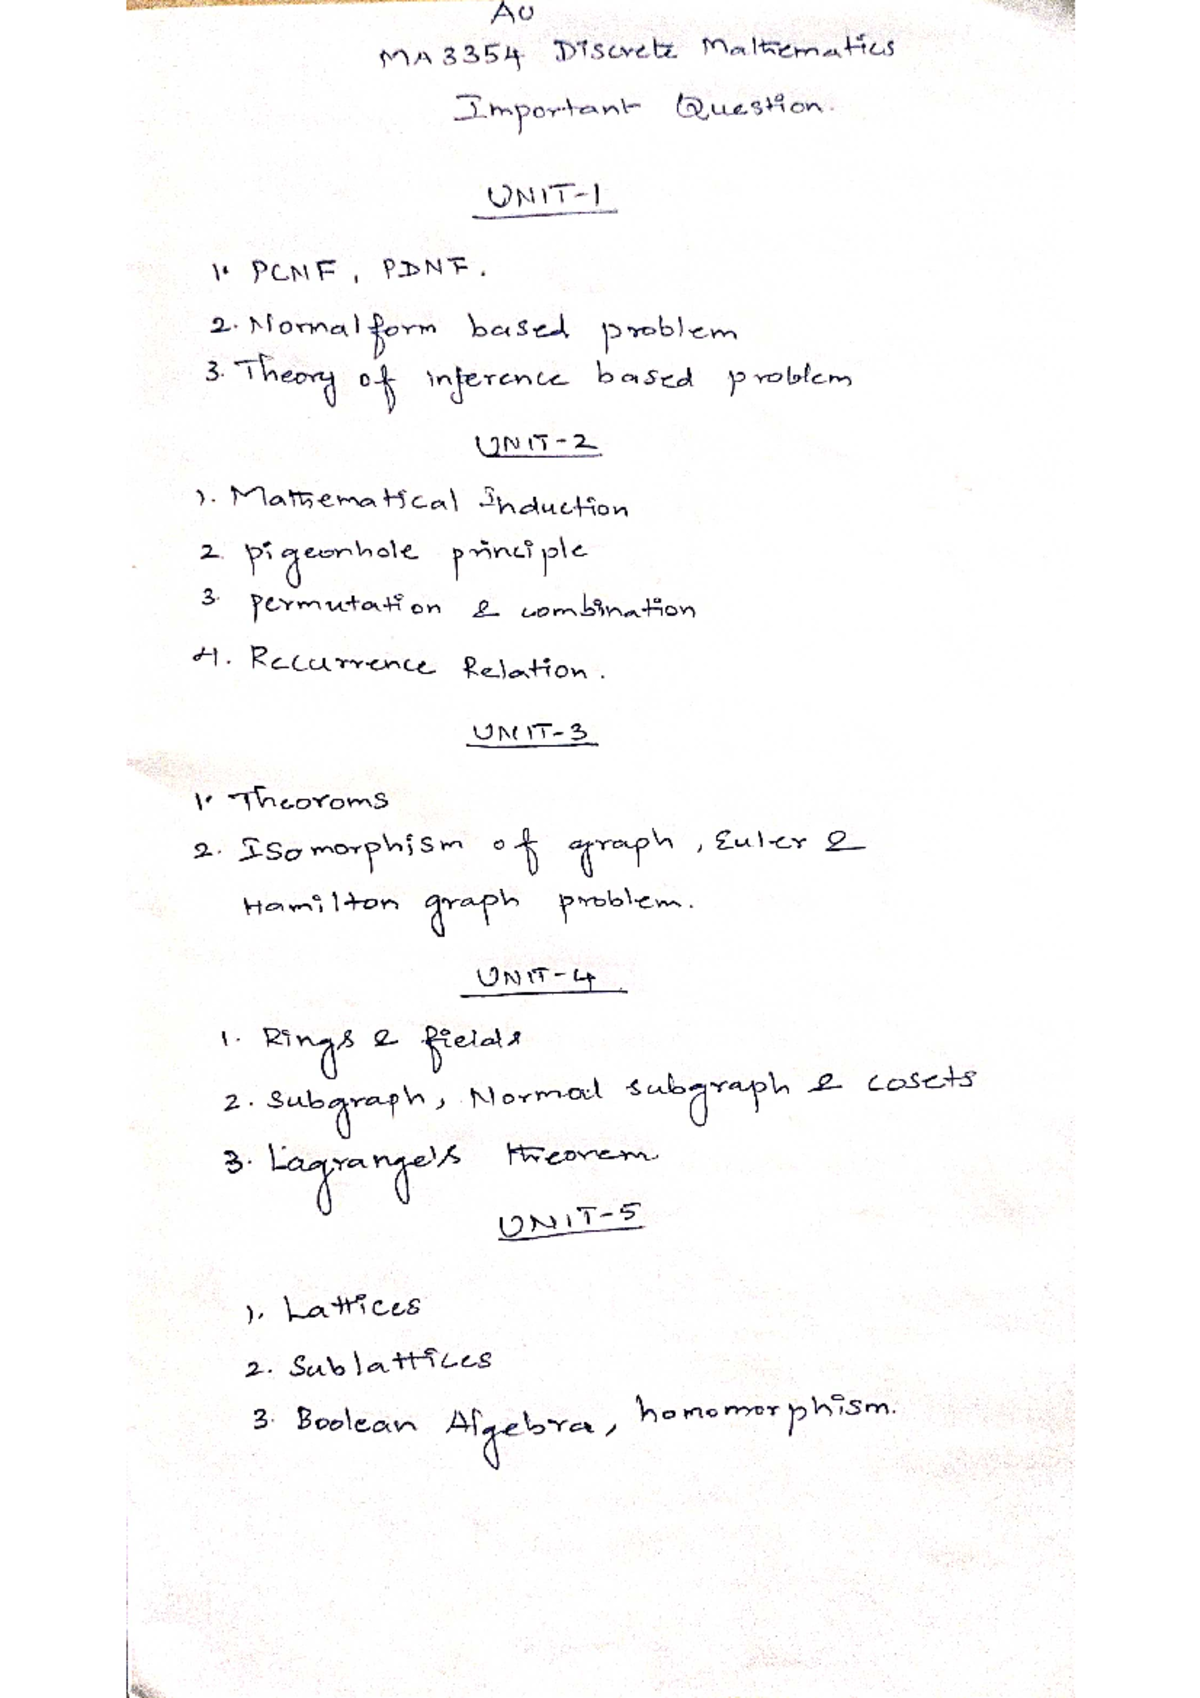 AU
MA3354 Discrete Mathematics
Important Question.
UNIT-1
1. PCNF, PDNF.
2. Normal form based problem
3. Theory of inference based problem
UNIT-2
1. Mathematical Induction
2. pigeonhole principle
3. permutation & combination
4. Recurrence Relation.
UNIT-3
1. Theoroms
2. Isomorphism of graph, Euler &
Hamilton graph problem.
UNIT-4
1. Rings & fields
2. Subgraph, Normal subgraph & cosets
3. Lagrange's theorem
UNIT-5
1. Lattices
2. Sublattices
3. Boolean Algebra, homomorphism.